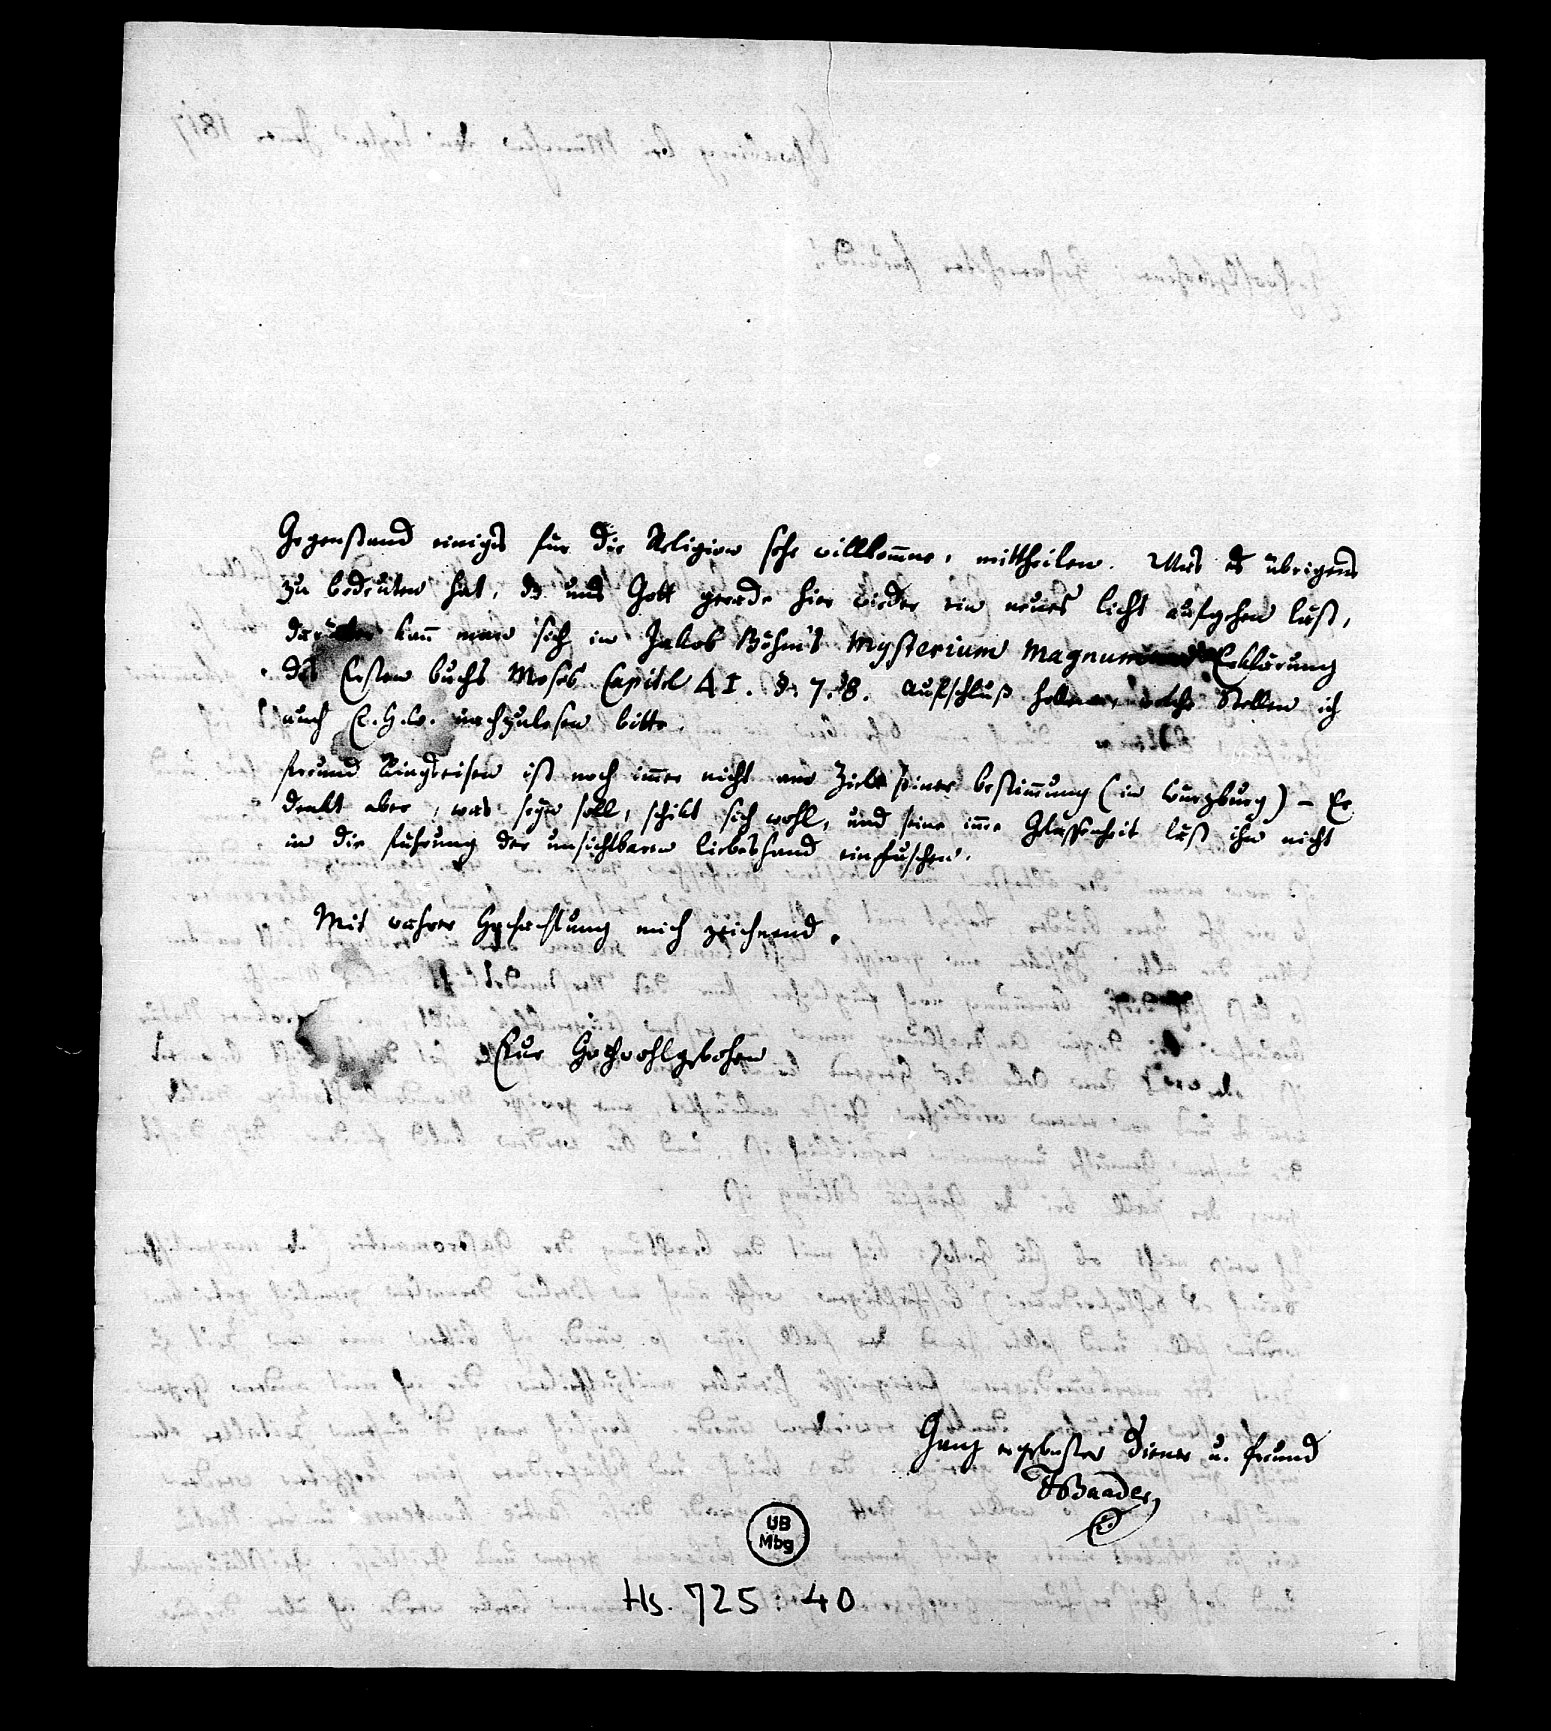 Gegenstand einiges für die Religion sehr willkomne, mittheilen. Was es übrigens
zu bedeuten hat, dß uns Gott gerade hier wieder ein neues licht aufgehen läßt,
darüber kañ man sich in Jakob Böhm's Mysterium Magnum Erklärung
des Ersten buchs Moses Capitel 41. § 7. 8. Aufschluß holen, welche Stellen ich
auch E. H. w. nachzulesen bitte.
freund Ringseisen ist noch im̃er nicht am Ziele seiner bestim̃ung (in Würzburg) – Er
denkt aber, was seyn soll, schikt sich wohl, und seine in̄re Gelassenheit läßt ihn nicht
in die führung der unsichtbaren liebeshand einpfuschen.
Mit wahrer Hochachtung mich zeichnend,
Eur Hochwohlgebohren
Ganz ergebenster Diener u. freund
FBaader
UB
Mbg
Hs. 725 : 40